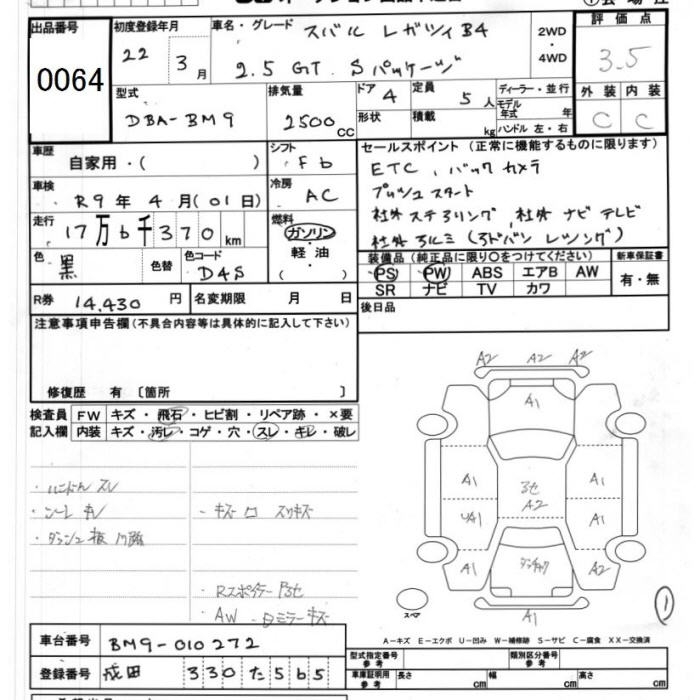 出品番号
0064
初度登録年月
22年 3月
車名・グレード
スバル レガシィ B4
2.5 GT Sパッケージ
2WD
・
4WD
評価点
3.5
外装 内装
C C
型式
DBA-BM9
排気量
2500 CC
ドア 4
形状
定員 5人
積載 kg
ディーラー・並行
モデル年式 年
ハンドル 左・右
車歴
自家用・( )
シフト
Fb
車検
R9年 4月 (01日)
冷房
AC
走行
17万6千370 km
燃料
ガソリン
・
軽油
( )
色
黒
色替
色コード
D4S
R券
14,430円
名変期限 月 日
セールスポイント (正常に機能するものに限ります)
ETC、バックカメラ
プッシュスタート
社外ステアリング 社外ナビテレビ
社外アルミ (アドバンレーシング)
装備品 (純正品に限り〇をつけてください)
PS PW ABS エアB AW
SR ナビ TV カワ
新車保証書
有・無
後日品
注意事項申告欄(不具合内容等は具体的に記入して下さい)
修復歴 有 〔箇所 〕
検査員記入欄
FW キズ・飛石・ヒビ割・リペア跡・×要
内装 キズ・汚レ・コゲ・穴・スレ・キレ・破レ
・ハンドルスレ
・シートキレ
・キズ
・Rスポイラー
・AW キズ
A2 A2 A2
A1
A1 A1
A2
A1
A1 A2
A1
スペア
1
A－キズ E－エクボ U－凹み W－補修跡 S－サビ C－腐食 XX－交換済
車台番号
BM9-010272
登録番号
成田 330 た 565
型式指定番号
参考
類別区分番号
参考
車庫証明用
参考
長さ cm 幅 cm 高さ cm